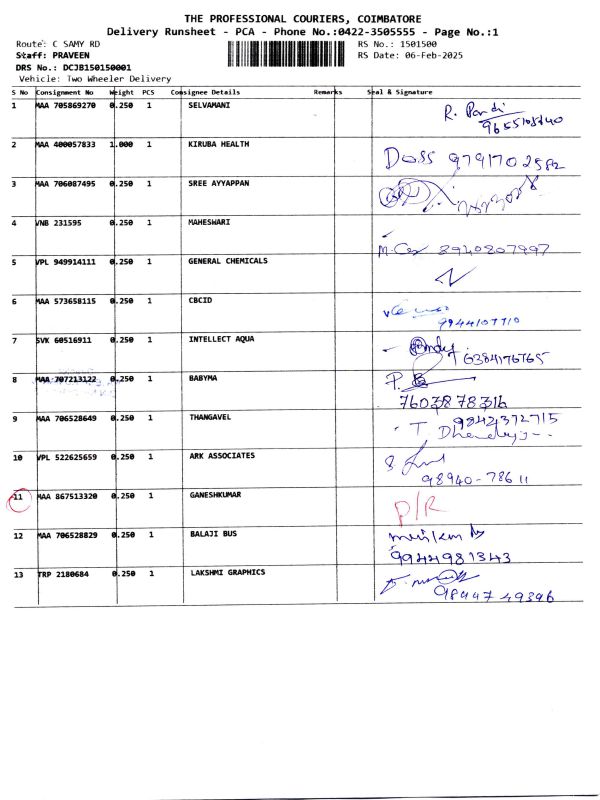 THE PROFESSIONAL COURIERS, COIMBATORE
Delivery Runsheet - PCA - Phone No.:0422-3505555 - Page No.:1
Route: C SAMY RD RS No.: 1501500
Staff: PRAVEEN RS Date: 06-Feb-2025
DRS No.: DCJB150150001
Vehicle: Two Wheeler Delivery
S No Consignment No Weight PCS Consignee Details Remarks Seal & Signature
1 MAA 705869270 0.250 1 SELVAMANI R. Pandi
2 MAA 400057833 1.000 1 KIRUBA HEALTH Doss 9791702582
3 MAA 706087495 0.250 1 SREE AYYAPPAN
4 VNB 231595 0.250 1 MAHESWARI 8940207997
5 VPL 949914111 0.250 1 GENERAL CHEMICALS
6 MAA 573658115 0.250 1 CBCID
9944107710
7 SVK 60516911 0.250 1 INTELLECT AQUA
6384176765
8 MAA 707213122 0.250 1 BABYMA P.
7603878316
9 MAA 706528649 0.250 1 THANGAVEL 9842372715
T
10 VPL 522625659 0.250 1 ARK ASSOCIATES
98940-78611
11 MAA 867513320 0.250 1 GANESHKUMAR P/R
12 MAA 706528829 0.250 1 BALAJI BUS
9944981343
13 TRP 2180684 0.250 1 LAKSHMI GRAPHICS
98447 49396